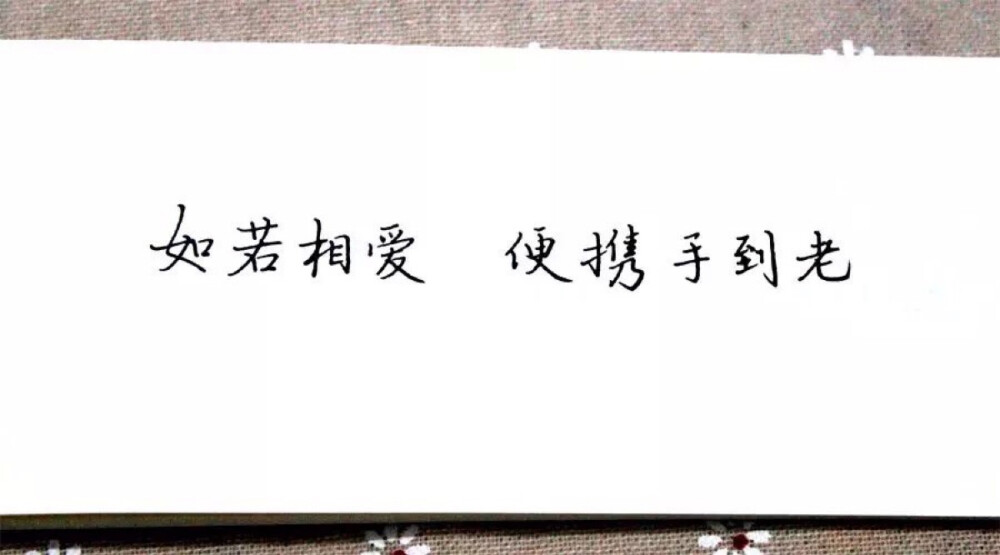 如若相爱 便携手到老